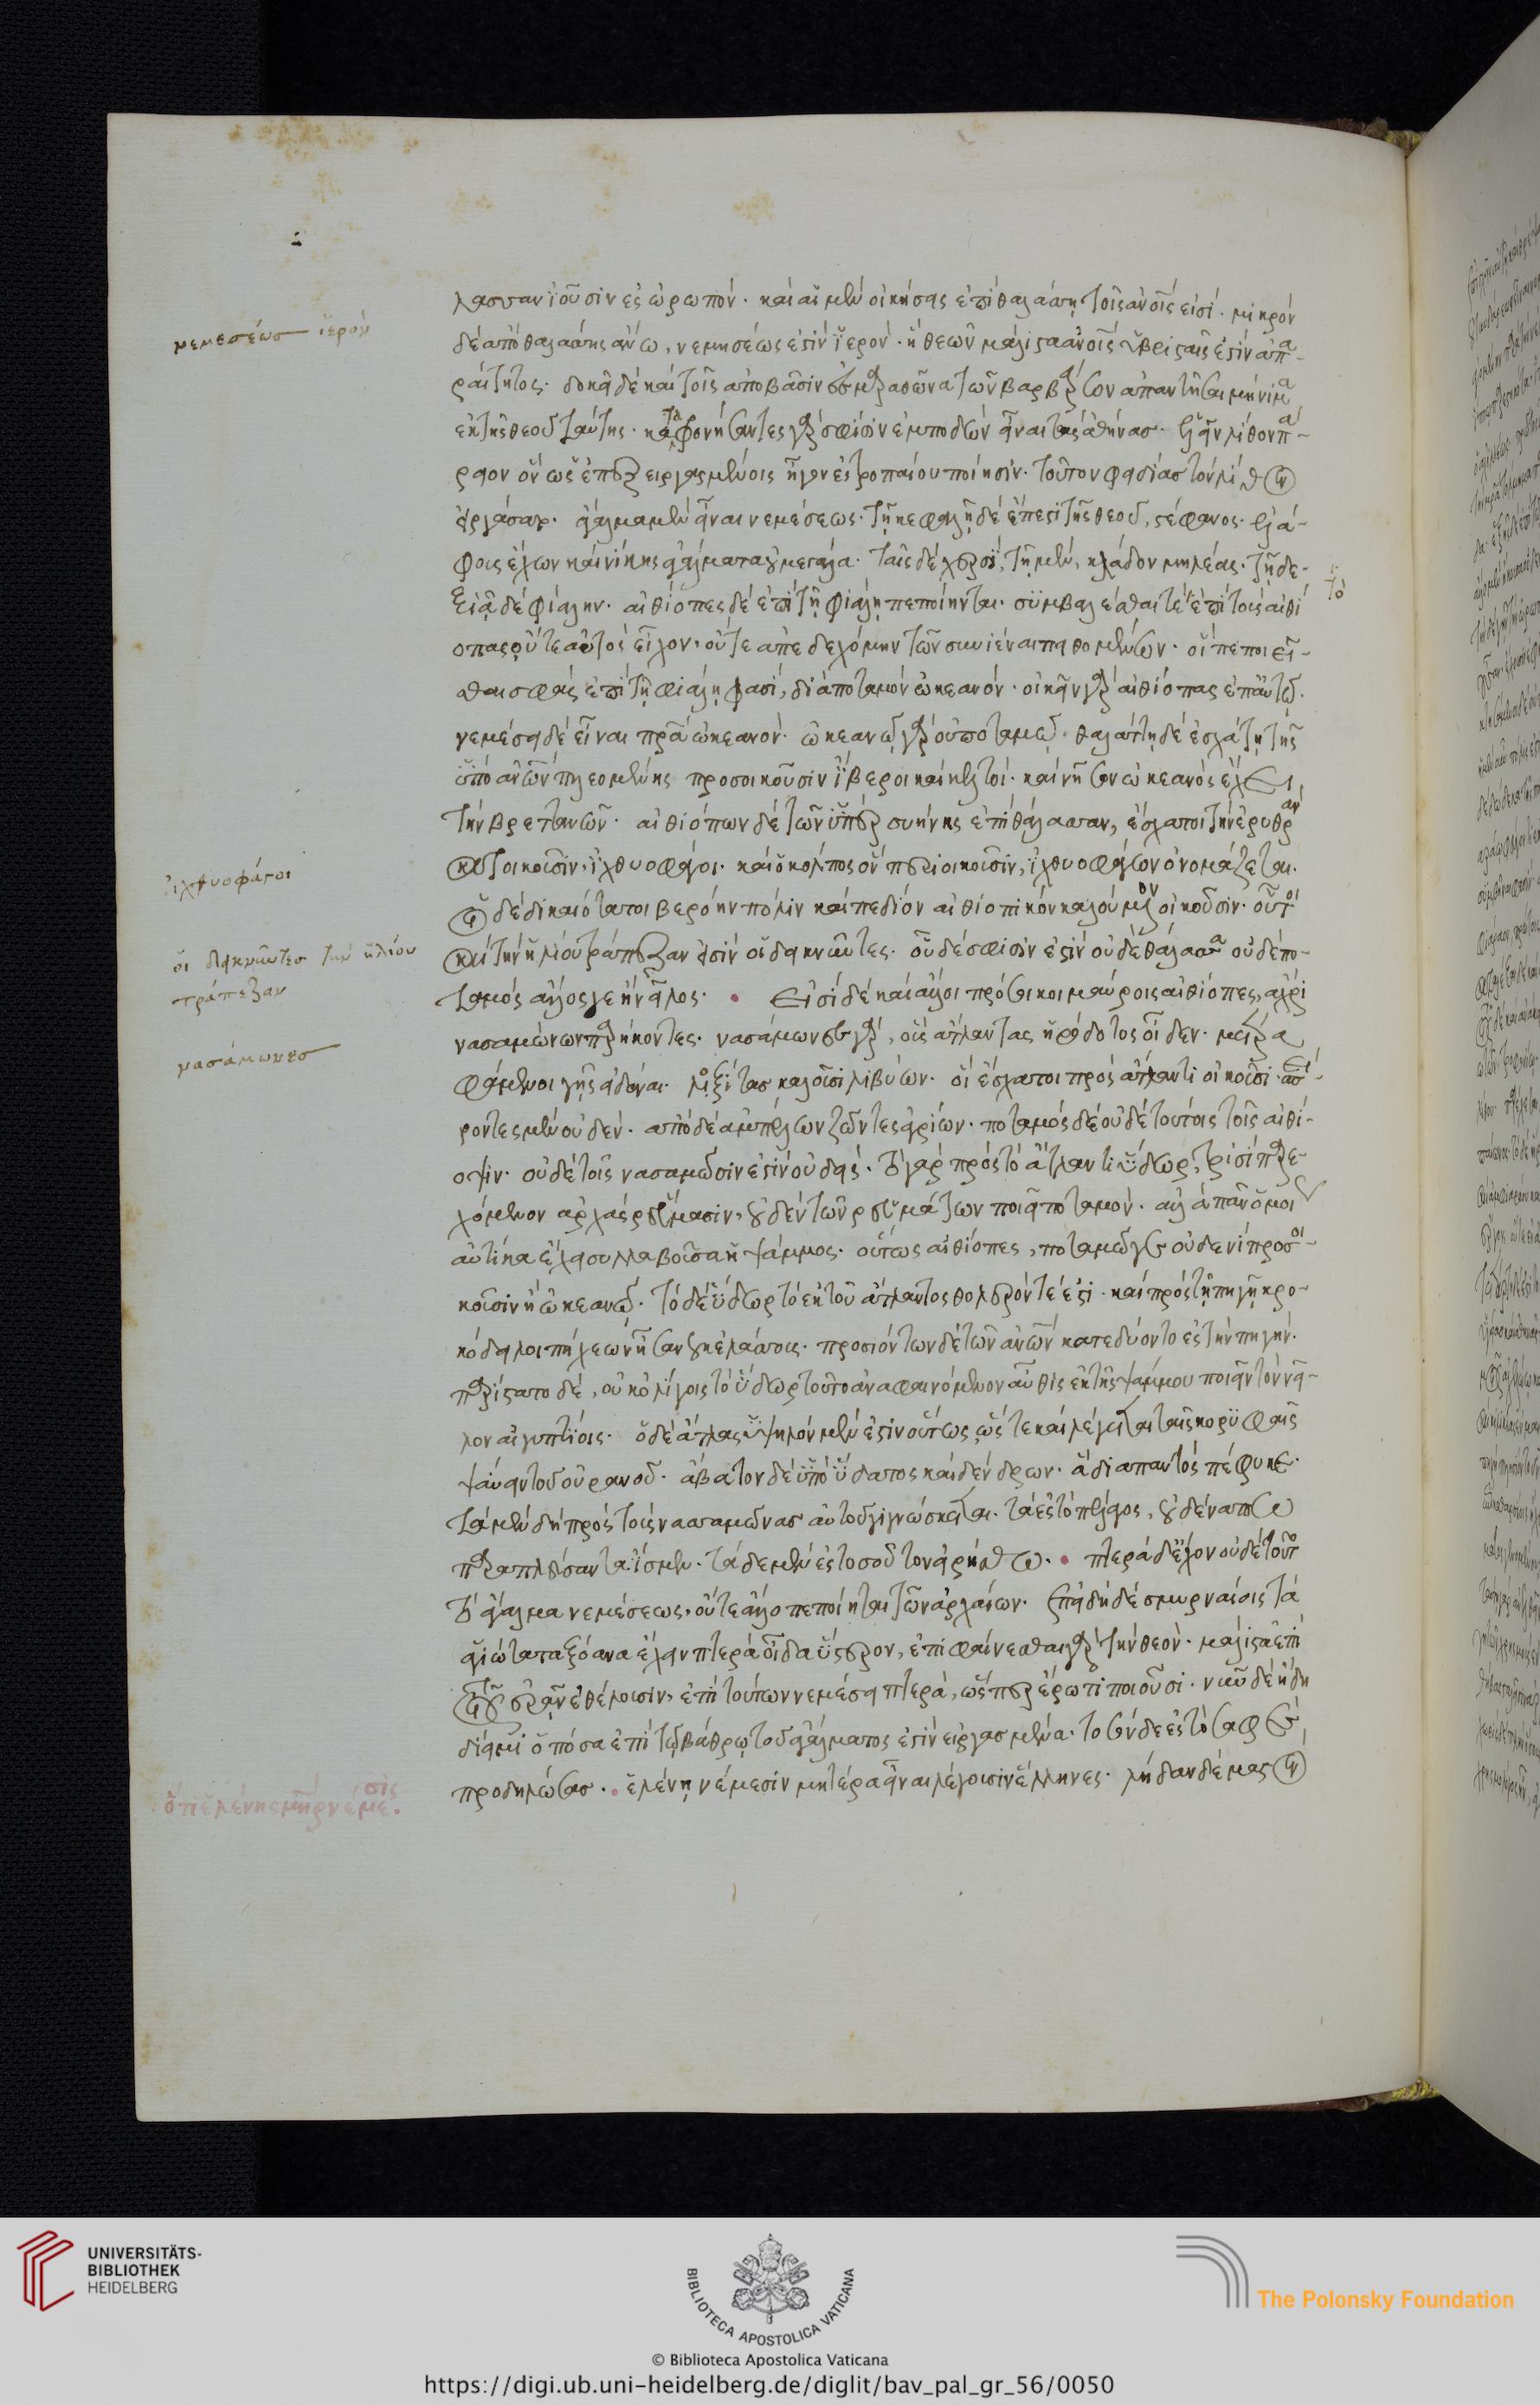 λασσαν ἰοῦσιν ἐς ὠρωπόν· καὶ αἱ μὲν οἰκήσεις ἐπὶ θαλάσσῃ τοῖς ἀνοις εἰσί· μικρὸν
νεμεσέως ἱερόν
δὲ ἀπὸ θαλάσσης ἄνω, νεμησέως ἐστὶν ἱερόν· ἣ θεῶν μάλιστα ἀνοις ὑβρισταῖς ἐστὶν ἀπα-
ραίτητος· δοκεῖ δὲ καὶ τοῖς ἀποβᾶσιν ἐς μαραθῶνα τῶν βαρβάρων ἀπαντῆσαι μήνιμα
ἐκ τῆς θεοῦ ταύτης· καταφρονήσαντες γάρ σφίσιν ἐμποδὼν εἶναι τὰς ἀθήνας ἑλεῖν λίθον πά-
ριον ὃν ὡς ἐπεξειργασμένοις ἦγον ἐς τροπαίου ποίησιν· τοῦτον φειδίας τὸν λίθον
εἰργάσατο· ἄγαλμα μὲν εἶναι νεμέσεως· τῇ κεφαλῇ δὲ ἔπεστι τῆς θεοῦ, στέφανος· ἐλά-
φους ἔχων καὶ νίκης ἀγάλματα οὐ μεγάλα· ταῖς δὲ χερσί, τῇ μὲν, κλάδον μηλέας· τῇ δε-
ξιᾷ δὲ φιάλην· αἰθίοπες δὲ ἐπὶ τῇ φιάλῃ πεποίηνται· συμβαλέσθαι τὲ ἐπὶ τοὺς αἰθί
τὸ
οπας οὔτε αὐτὸς εἶχον, οὔτε ἀπεδεχόμην τῶν συνιέναι πειθομένων· οἳ πεποιεῖ-
σθαι σφᾶς ἐπὶ τῇ φιάλῃ φασί, διὰ ποταμὸν ὠκεανόν· οἰκεῖν γὰρ αἰθίοπας ἐπ' αὐτῷ·
νεμέσει δὲ εἶναι πρα ὠκεανόν· ὠκεανῷ γὰρ οὐ ποταμῷ· θαλάττῃ δὲ ἐσχάτῃ τῆς
ὑπὸ ἀνων πλεομένης προσοικοῦσιν ἴβηροι καὶ κελτοί· καὶ νῆσον ὠκεανὸς ἔχει
τὴν βρετανῶν· αἰθιόπων δὲ τῶν ὑπὲρ συήνης ἐπὶ θάλασσαν, ἔσχατοι τὴν ἐρυθρὰν
ἰχθυοφάγοι
κατοικοῦσιν, ἰχθυοφάγοι· καὶ ὁ κόλπος ὃν περιοικοῦσιν, ἰχθυοφάγων ὀνομάζεται·
οἱ δὲ δικαιότατοι βερόην πόλιν καὶ πεδίον αἰθιοπικὸν καλούμενον οἰκοῦσιν· οὗτοι
οἱ δεικνῦντες τὴν ἡλίου
τράπεζαν
καὶ τὴν ἡλίου τράπεζαν εἰσὶν οἱ δεικνῦντες· οὐδέ σφισιν ἐστὶν οὐδὲ θάλασσα οὐδὲ πο-
ταμὸς ἄλλος γε ἢ νεῖλος· εἰσὶ δὲ καὶ ἄλλοι πρόσοικοι μαύροις αἰθίοπες, ἄχρι
νασάμωνες
νασαμώνων παρήκοντες· νασάμωνες γὰρ, οὓς ἄτλαντας ἡρόδοτος οἶδεν· μέτρα
φάμενοι γῆς εἰδέναι· λιξίτας καλοῦσι λιβύων· οἱ ἔσχατοι πρὸς ἄτλαντι οἰκοῦσι σπεί-
ροντες μὲν οὐδέν· ἀπὸ δὲ ἀμπέλων ζῶντες ἀγρίων· ποταμὸς δὲ οὐδὲ τούτοις τοῖς αἰθί-
οψιν· οὐδὲ τοῖς νασαμῶσιν ἐστὶν οὐδείς· τὸ γὰρ πρὸς τὸ ἄτλαντι ὕδωρ, τρισὶ παρε-
χόμενον ἀρχὰς ῥεύμασιν, οὐδὲν τῶν ῥευμάτων ποιεῖ ποταμόν· ἀλλὰ πᾶν ὁμοί
αὐτίκα ἔχει συλλαβοῦσα ἡ ψάμμος· οὕτως αἰθίοπες, ποταμῷ γε οὐδενὶ προσοι-
κοῦσιν ἢ ὠκεανῷ· τὸ δὲ ὕδωρ τὸ ἐκ τοῦ ἄτλαντος θολερόν τέ ἐστι· καὶ πρὸς τῇ πηγῇ κρο-
κόδειλοι πήχεων ἦσαν οὐκ ἐλάσσους· προσιόντων δὲ τῶν ἀνων κατεδύοντο ἐς τὴν πηγήν·
παρίστατο δὲ, οὐκ ὀλίγοις τὸ ὕδωρ τοῦτο ἀναφαινόμενον αὖθις ἐκ τῆς ψάμμου ποιεῖν τὸν νεῖ-
λον αἰγυπτίοις· ὁ δὲ ἄτλας ὑψηλὸν μὲν ἐστὶν οὕτως ὥς τε καὶ λέγεται ταῖς κορυφαῖς
ψαύειν τοῦ οὐρανοῦ· ἄβατον δὲ ὑπὸ ὕδατος καὶ δένδρων· ἃ διαπαντὸς πέφυκε·
τὰ μὲν δὴ πρὸς τοὺς νασαμῶνας αὐτοῦ γιγνώσκεται· τὰ ἐς τὸ πέλαγος, οὐδένα πω
παραπλεύσαντα ἴσμεν· τὰ δὲ μὲν ἐς τοσοῦτον εἰρήσθω· πτερὰ δ' ἔχον οὐδὲ τοῦτο
τὸ ἄγαλμα νεμέσεως, οὔτε ἄλλο πεποίηται τῶν ἀρχαίων· ἐπεὶ δὴ δὲ σμυρναίοις τὰ
ἁγιώτατα ξόανα ἔχειν πτερὰ οἶδα ὕστερον, ἐπιφαίνεσθαι γὰρ τὴν θεὸν· μάλιστα ἐπὶ
τοῦ ἐρᾶν ἐθέλουσιν, ἐπὶ τούτων νεμέσει πτερὰ, ὥσπερ ἔρωτι ποιοῦσι· νῦν δὲ ἤδη
δίειμι ὁπόσα ἐπὶ τῷ βάθρῳ τοῦ ἀγάλματος ἐστὶν εἰργασμένα· τοσόνδε ἐς τὸ σαφὲς
ὅτι ἑλένης μηρ νέμεσις.
προδηλώσας· ἑλένῃ νέμεσιν μητέρα εἶναι λέγουσιν ἕλληνες· λήδαν δὲ μαστὸν
UNIVERSITÄTS-
BIBLIOTHEK
HEIDELBERG
BIBLIOTECA APOSTOLICA VATICANA
© Biblioteca Apostolica Vaticana
The Polonsky Foundation
https://digi.ub.uni-heidelberg.de/diglit/bav_pal_gr_56/0050